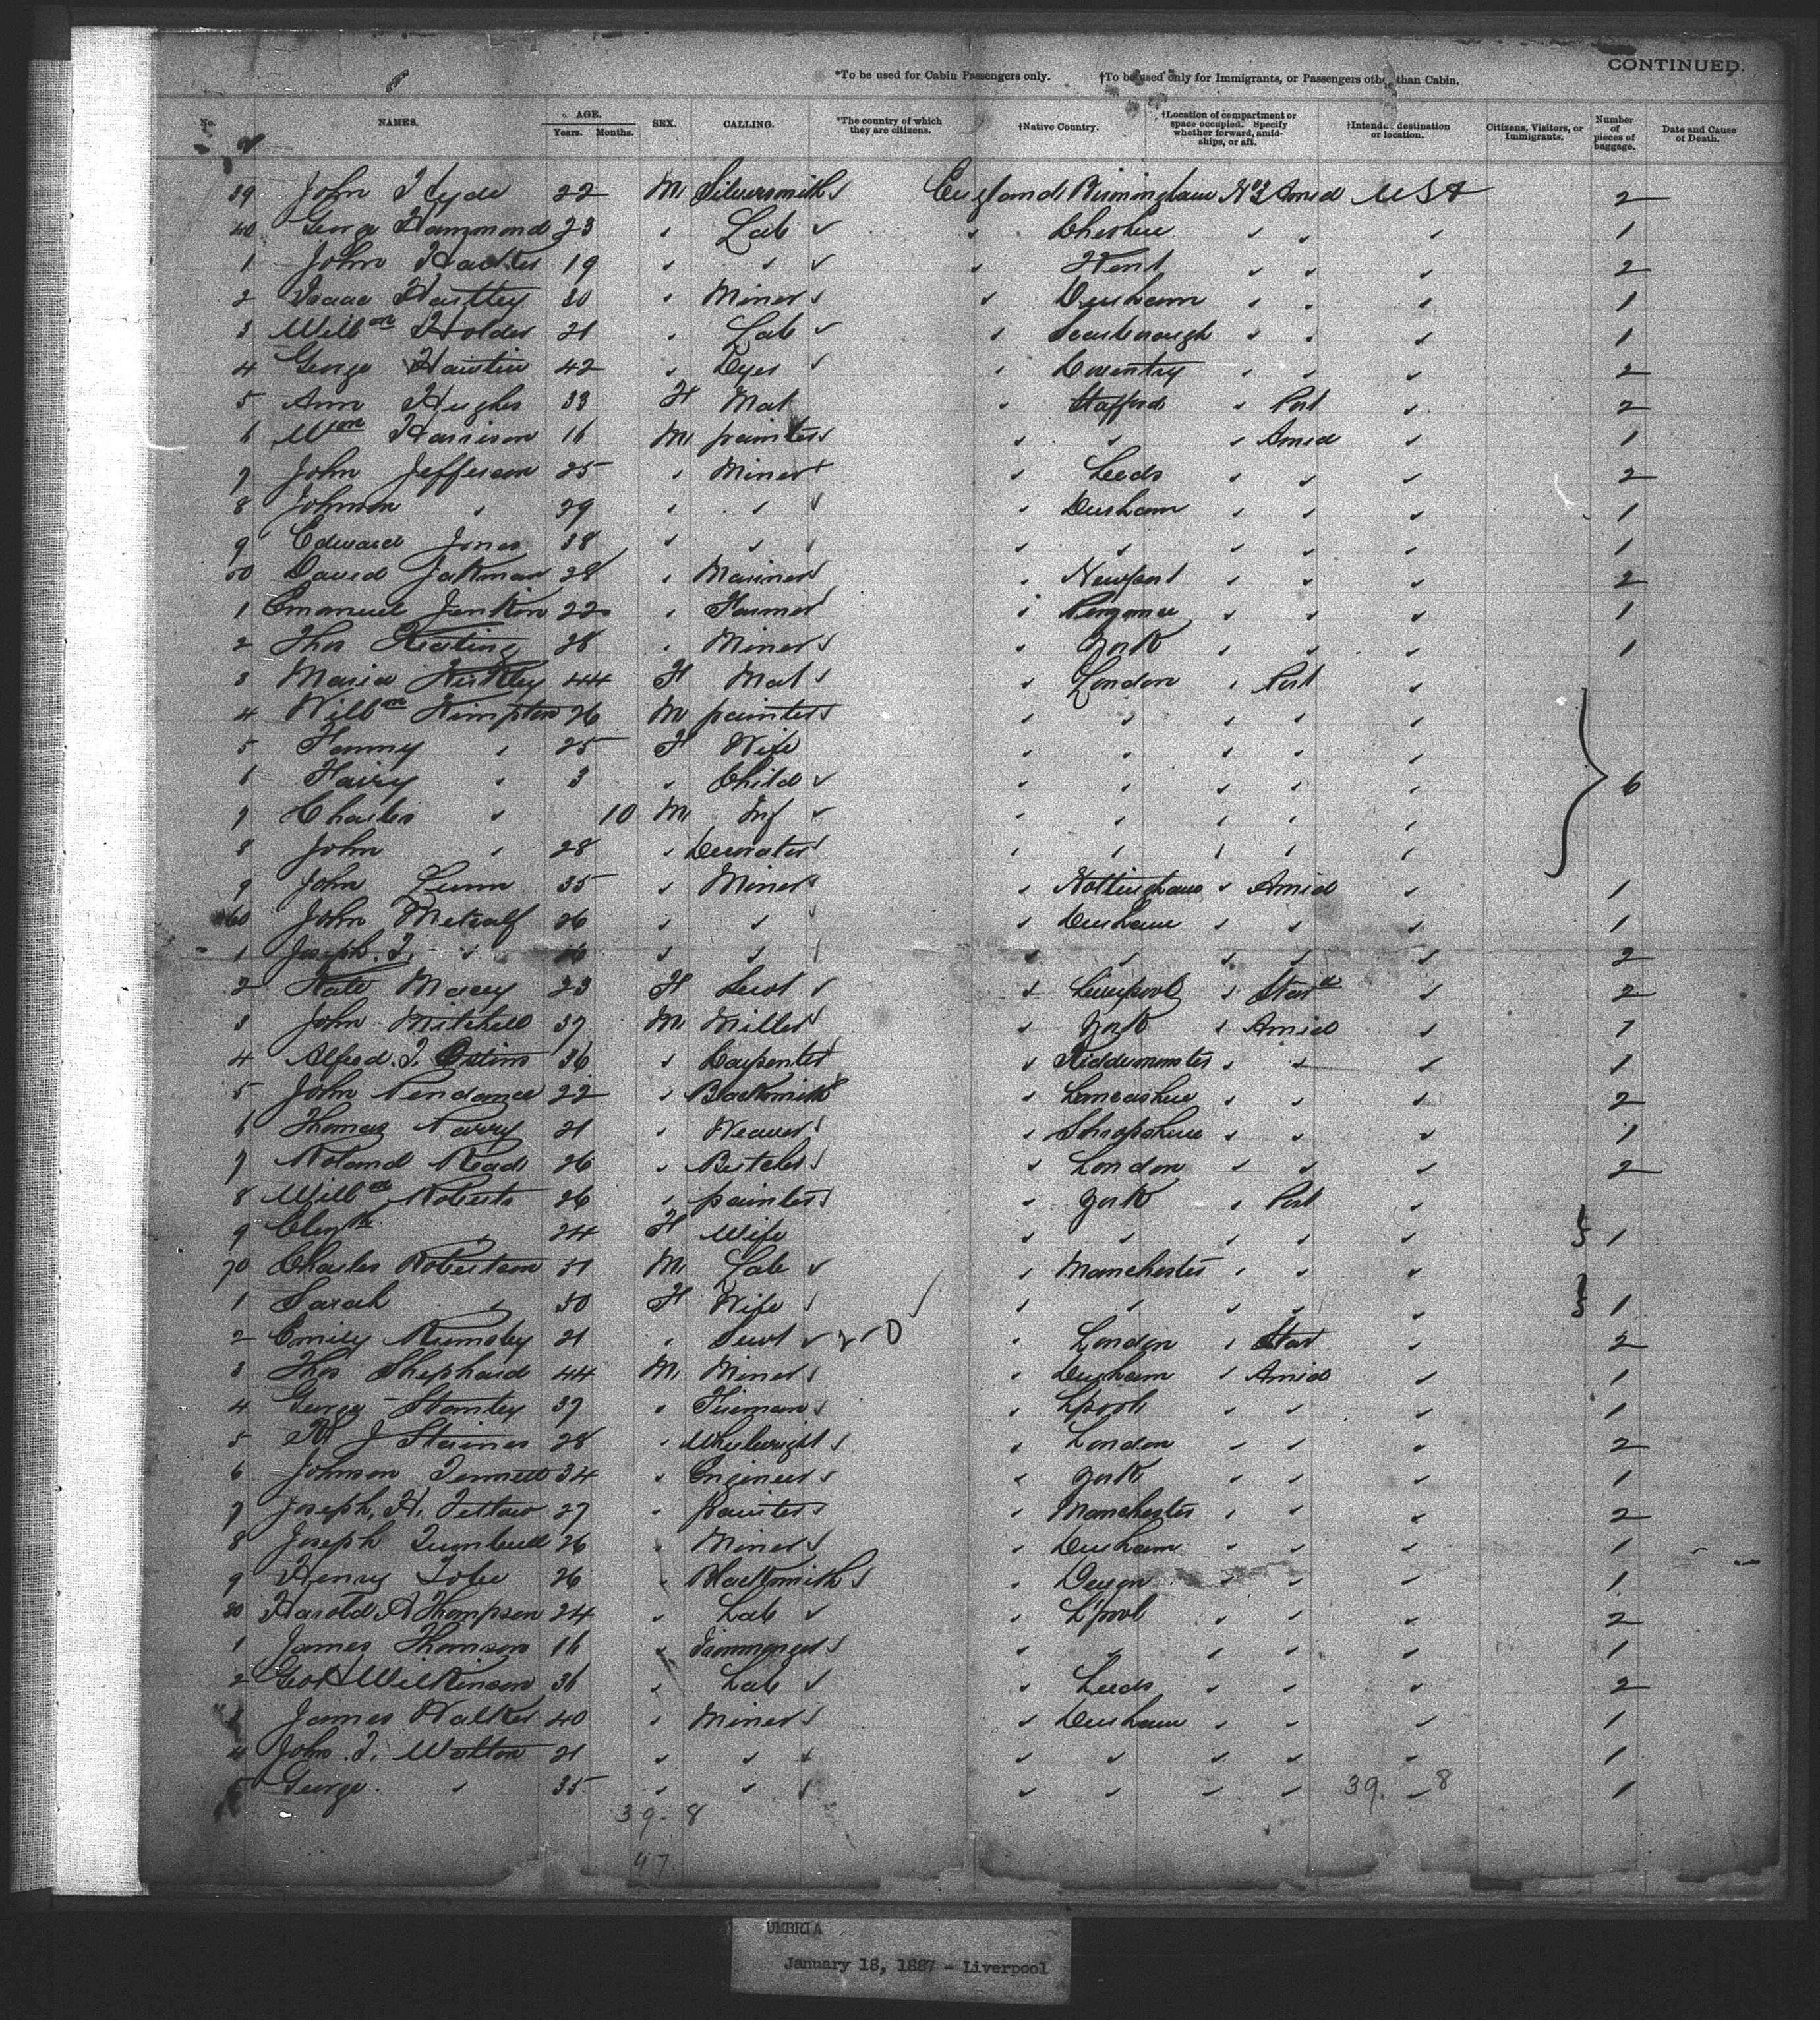 CONTINUED.
*To be used for Cabin Passengers only. †To be used only for Immigrants, or Passengers other than Cabin.
No. NAMES. AGE. Years. Months. SEX. CALLING. *The country of which they are citizens. †Native Country. †Location of compartment or space occupied. Specify whether forward, amidships, or aft. †Intended destination or location. Citizens, Visitors, or Immigrants. Number of pieces of baggage. Date and Cause of Death.
39 John Hyde 22 M Silversmith England Birmingham No 3 Amid USA 2
40 George Hammond 23 Lab Cheshire 1
1 John 19 Kent 2
2 Isaac Hartley 30 Miner Durham 1
3 Willm Holder 21 Lab Scarborough 1
4 George 42 Dyer Coventry 2
5 Ann Hughes 33 F Mat Stafford Port 2
6 Wm Harrison 16 M painter Amid 1
7 John Jefferson 25 Miner Leeds 2
8 Johnson 29 Durham 1
9 Edward Jones 38 1
50 David Jakman 28 Mariner Newport 2
1 Emanuel Jenkin 22 Farmer Penzance 1
2 Thos Keating 28 Miner York 1
3 Maria 44 F Mat London Port
4 Willm Kimpton 26 M painter
5 Fanny 25 F Wife
6 3 Child 6
7 Charles 10 M Inf
8 John 28 Decorator
9 John Lunn 35 Miner Nottingham Amid 1
60 John Metcalf 26 Durham 1
1 Joseph. T. 2
2 Kate Macey 23 F Servt Liverpool Starb 2
3 John Mitchell 37 M Miller York Amid 1
4 Alfred. T. 36 Carpenter Kidderminster 1
5 John Pendance 22 Blacksmith Lancashire 2
6 Thomas Parry 21 Weaver Shropshire 1
7 Roland Read 26 Butcher London 2
8 Willm Roberts 26 painter York Port
9 24 F Wife 1
70 Charles Robertson 51 M Lab Manchester
1 Sarah 50 F Wife 1
2 Emily Rumsby 21 Servt London Star 2
3 Thos Shephard 44 M Miner Durham Amid 1
4 George Stanley 37 Fireman Lpool 1
5 J Staines 28 Wheelwright London 2
6 Johnson Tennett 34 Engineer York 1
7 Joseph, H. Tetlow 27 painter Manchester 2
8 Joseph Turnbull 26 Miner Durham 1
9 Henry 26 Blacksmith Devon 1
80 Harold A Thompson 24 Lab L'pool 2
1 James Thomson 16 Ironmonger 1
2 Geo H Wilkinson 36 Lab Leeds 2
James Walker 40 Miner Durham 1
4 John. T. Walton 21 1
5 George 35 39 8 1
39 - 8
47
UMBRIA
January 18, 1887 - Liverpool